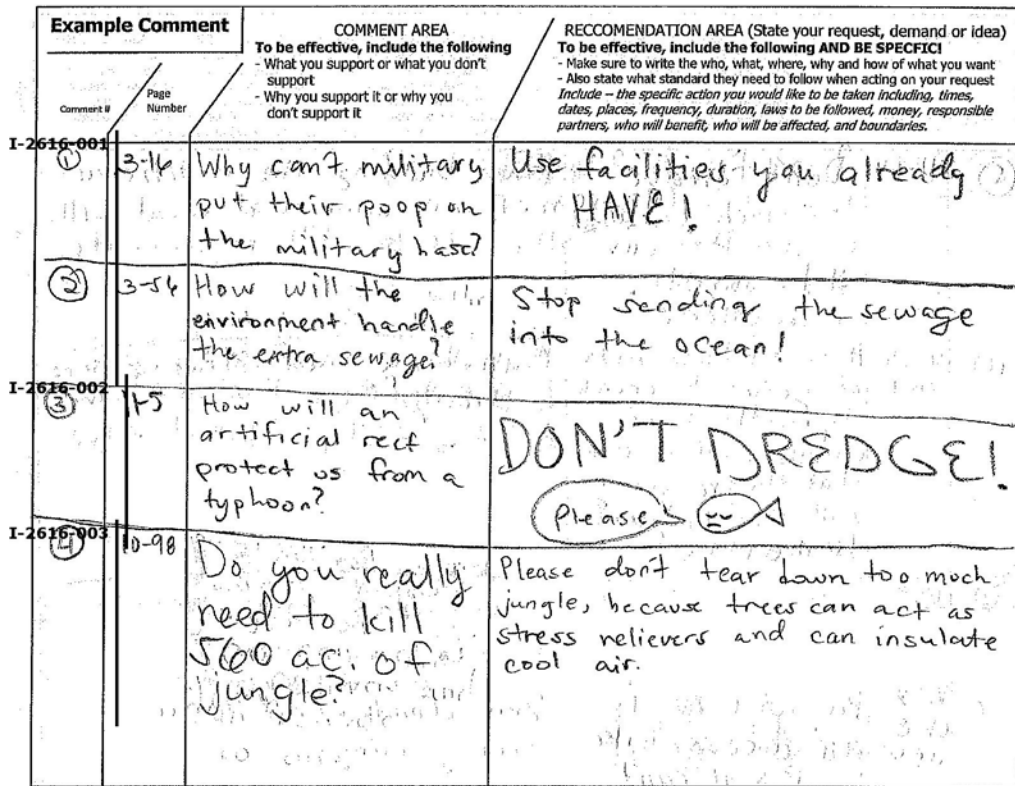 Example Comment
COMMENT AREA
To be effective, include the following
- What you support or what you don't
support
- Why you support it or why you
don't support it
RECCOMENDATION AREA (State your request, demand or idea)
To be effective, include the following AND BE SPECFIC!
- Make sure to write the who, what, where, why and how of what you want
- Also state what standard they need to follow when acting on your request
Include – the specific action you would like to be taken including, times,
dates, places, frequency, duration, laws to be followed, money, responsible
partners, who will benefit, who will be affected, and boundaries.
Comment #
Page
Number
I-2616-001
1
3-16
Why can't military
put their poop on
the military base?
Use facilities you already
HAVE!
2
3-56
How will the
environment handle
the extra sewage?
Stop sending the sewage
into the ocean!
I-2616-002
3
11-5
How will an
artificial reef
protect us from a
typhoon?
DON'T DREDGE!
Please
I-2616-003
4
10-98
Do you really
need to kill
560 ac. of
jungle?
Please don't tear down too much
jungle, because trees can act as
stress relievers and can insulate
cool air.